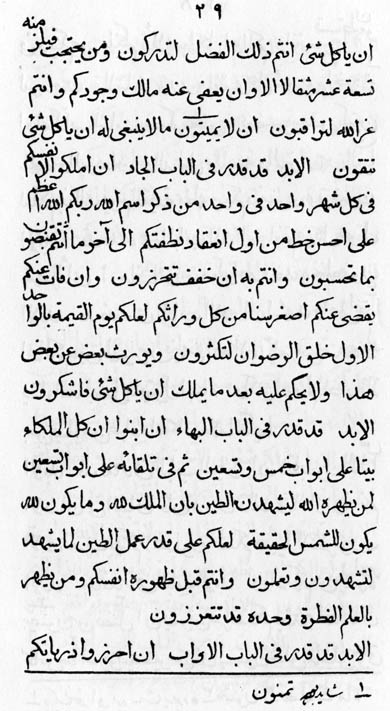 ٢٩
ان ياكل شئ انتم ذلك الفضل لتدركون ومن يحتجب فيلزمنه
تسعة عشر مثقالا الا وان يعفى عنه مالك وجودكم وانتم
عن الله لتراقبون ان لا يمنون ١ مالا ينبغى له ان ياكل شئ
تتقون الابد قد قدر فى الباب الجاد ان املكوا الانفسكم
فى كل شهر واحد فى واحد من ذكر اسم الله ربكم الله اعظم
على احسن خط من اول انعقاد نطفتكم الى آخر ما انتم تقبضون
بما تحسبون وانتم به ان خفف تتحرزون وان فات عنكم
يقضى عنكم اصغر سنا من كل وراثكم لعلكم يوم القيمة بالواحد
الاول خلق الرضوان لتكثرون ويورث بعض عن بعض
هذا ولا يحكم عليه بعد ما يملك ان ياكل شئ فاشكرون
الابد قد قدر فى الباب البهاء ان ابنوا ان كل الملكاء
بيتا على ابواب خمس وتسعين ثم فى تلقائه على ابواب التسعين
لمن نظهره الله ليشهدن الطين بان الملك لله وما يكون لله
يكون للشمس الحقيقة لعلكم على قدر عمل الطين لما يشهد
لتشهدون وتعلمون وانتم قبل ظهوره انفسكم ومن نظهر
بالعلم الفطرة وحده قد تتعززون
الابد قد قدر فى الباب الاواب ان احرزوا ذرياتكم
١ شايد تمنون